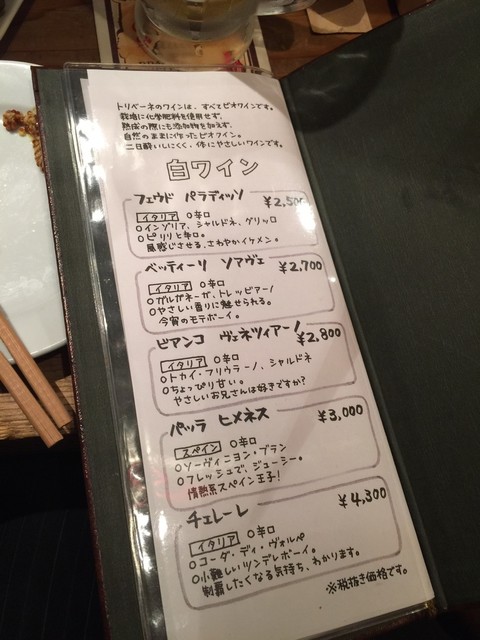 トリベーネのワインは、すべてビオワインです。
栽培に化学肥料を使用せず、
熟成の際にも添加物を加えず、
自然のままに作ったビオワイン。
二日酔いしにくく、体にやさしいワインです。
白ワイン
フェウド パラディッソ ¥2,500
イタリア ○辛口
○インゾリア、シャルドネ、グリッロ
○ピリリと辛口。
風感じさせる、さわやかイケメン。
ベッティーリ ソアヴェ ¥2,700
イタリア ○辛口
○ガルガネーガ、トレッビアーノ
○やさしい香りに魅せられる。
今宵のモテボーイ。
ビアンコ ヴェネツィアーノ ¥2,800
イタリア ○辛口
○トカイ・フリウラーノ、シャルドネ
○ちょっぴり甘い。
やさしいお兄さんは好きですか?
パッラ ヒメネス ¥3,000
スペイン ○辛口
○ソーヴィニヨン・ブラン
○フレッシュで、ジューシー。
情熱系スペイン王子!
チェレーレ ¥4,300
イタリア ○辛口
○コーダ・ディ・ヴォルペ
○小難しいツンデレボーイ。
制覇したくなる気持ち、わかります。
※税抜き価格です。